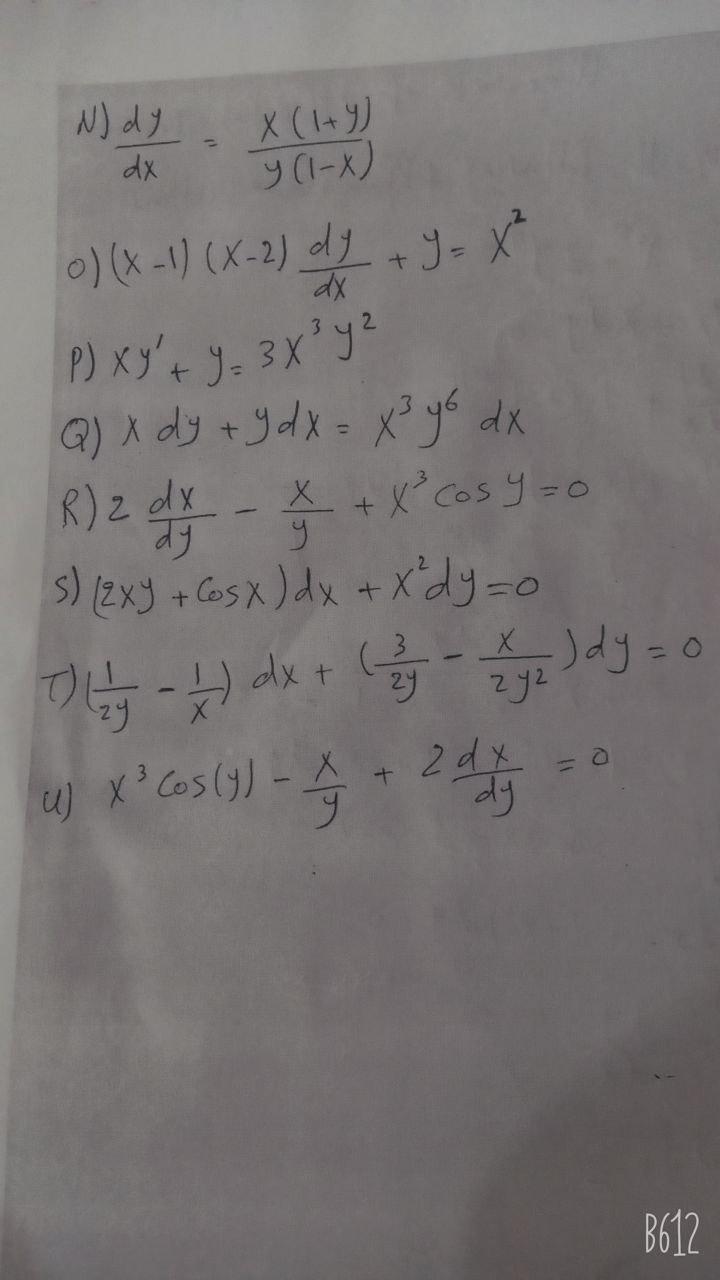 N) dy/dx = x(1+y)/y(1-x)
O) (x-1)(x-2) dy/dx + y = x²
P) xy' + y = 3x³y²
Q) x dy + y dx = x³y⁶ dx
R) 2 dx/dy - x/y + x³ cos y = 0
S) (2xy + cos x)dx + x²dy = 0
T) (1/2y - 1/x) dx + (3/2y - x/2y²)dy = 0
U) x³ cos(y) - x/y + 2 dx/dy = 0
B612